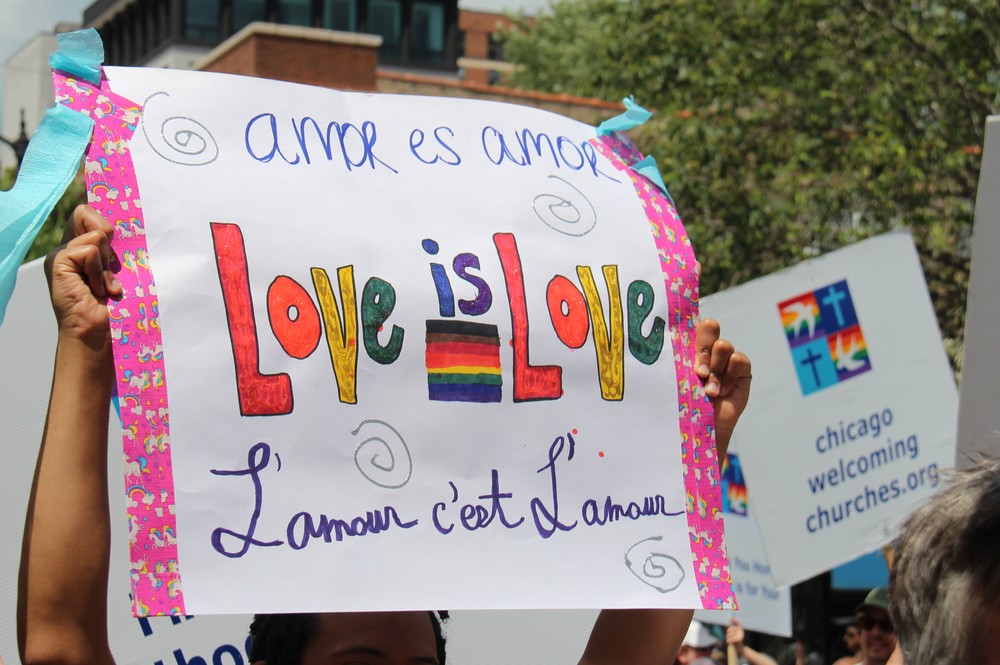 amor es amor
Love is Love
L'amour c'est L'amour
chicago
welcoming
churches.org
You
is for Your